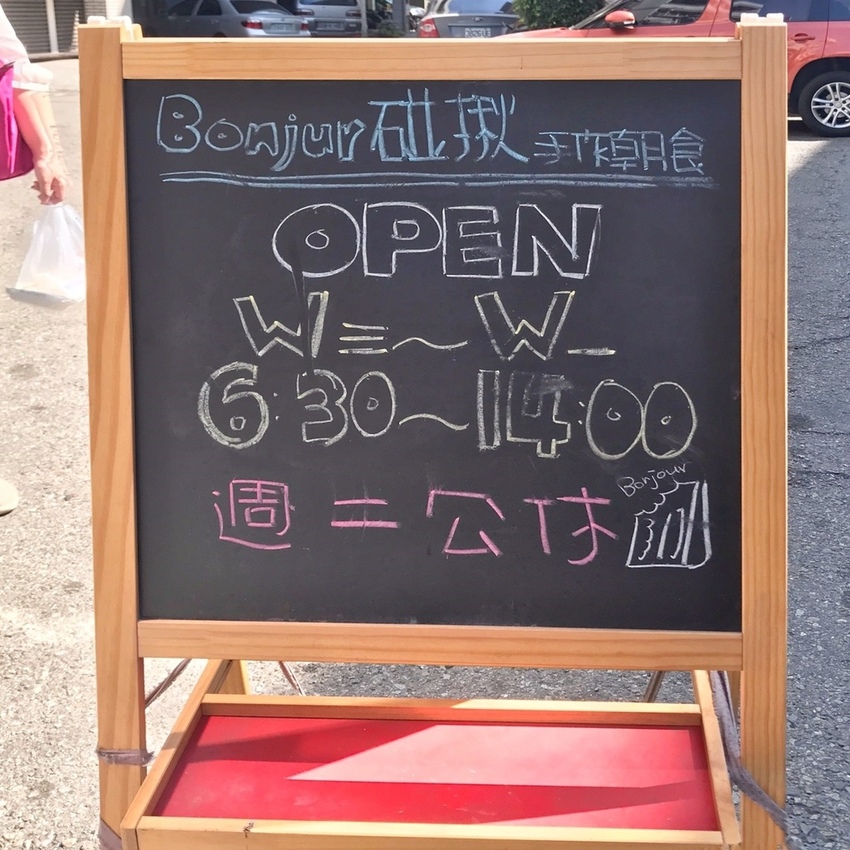 Bonjur碰揪 手作朝食
OPEN
W三~W一
6:30~14:00
週二公休
Bonjour